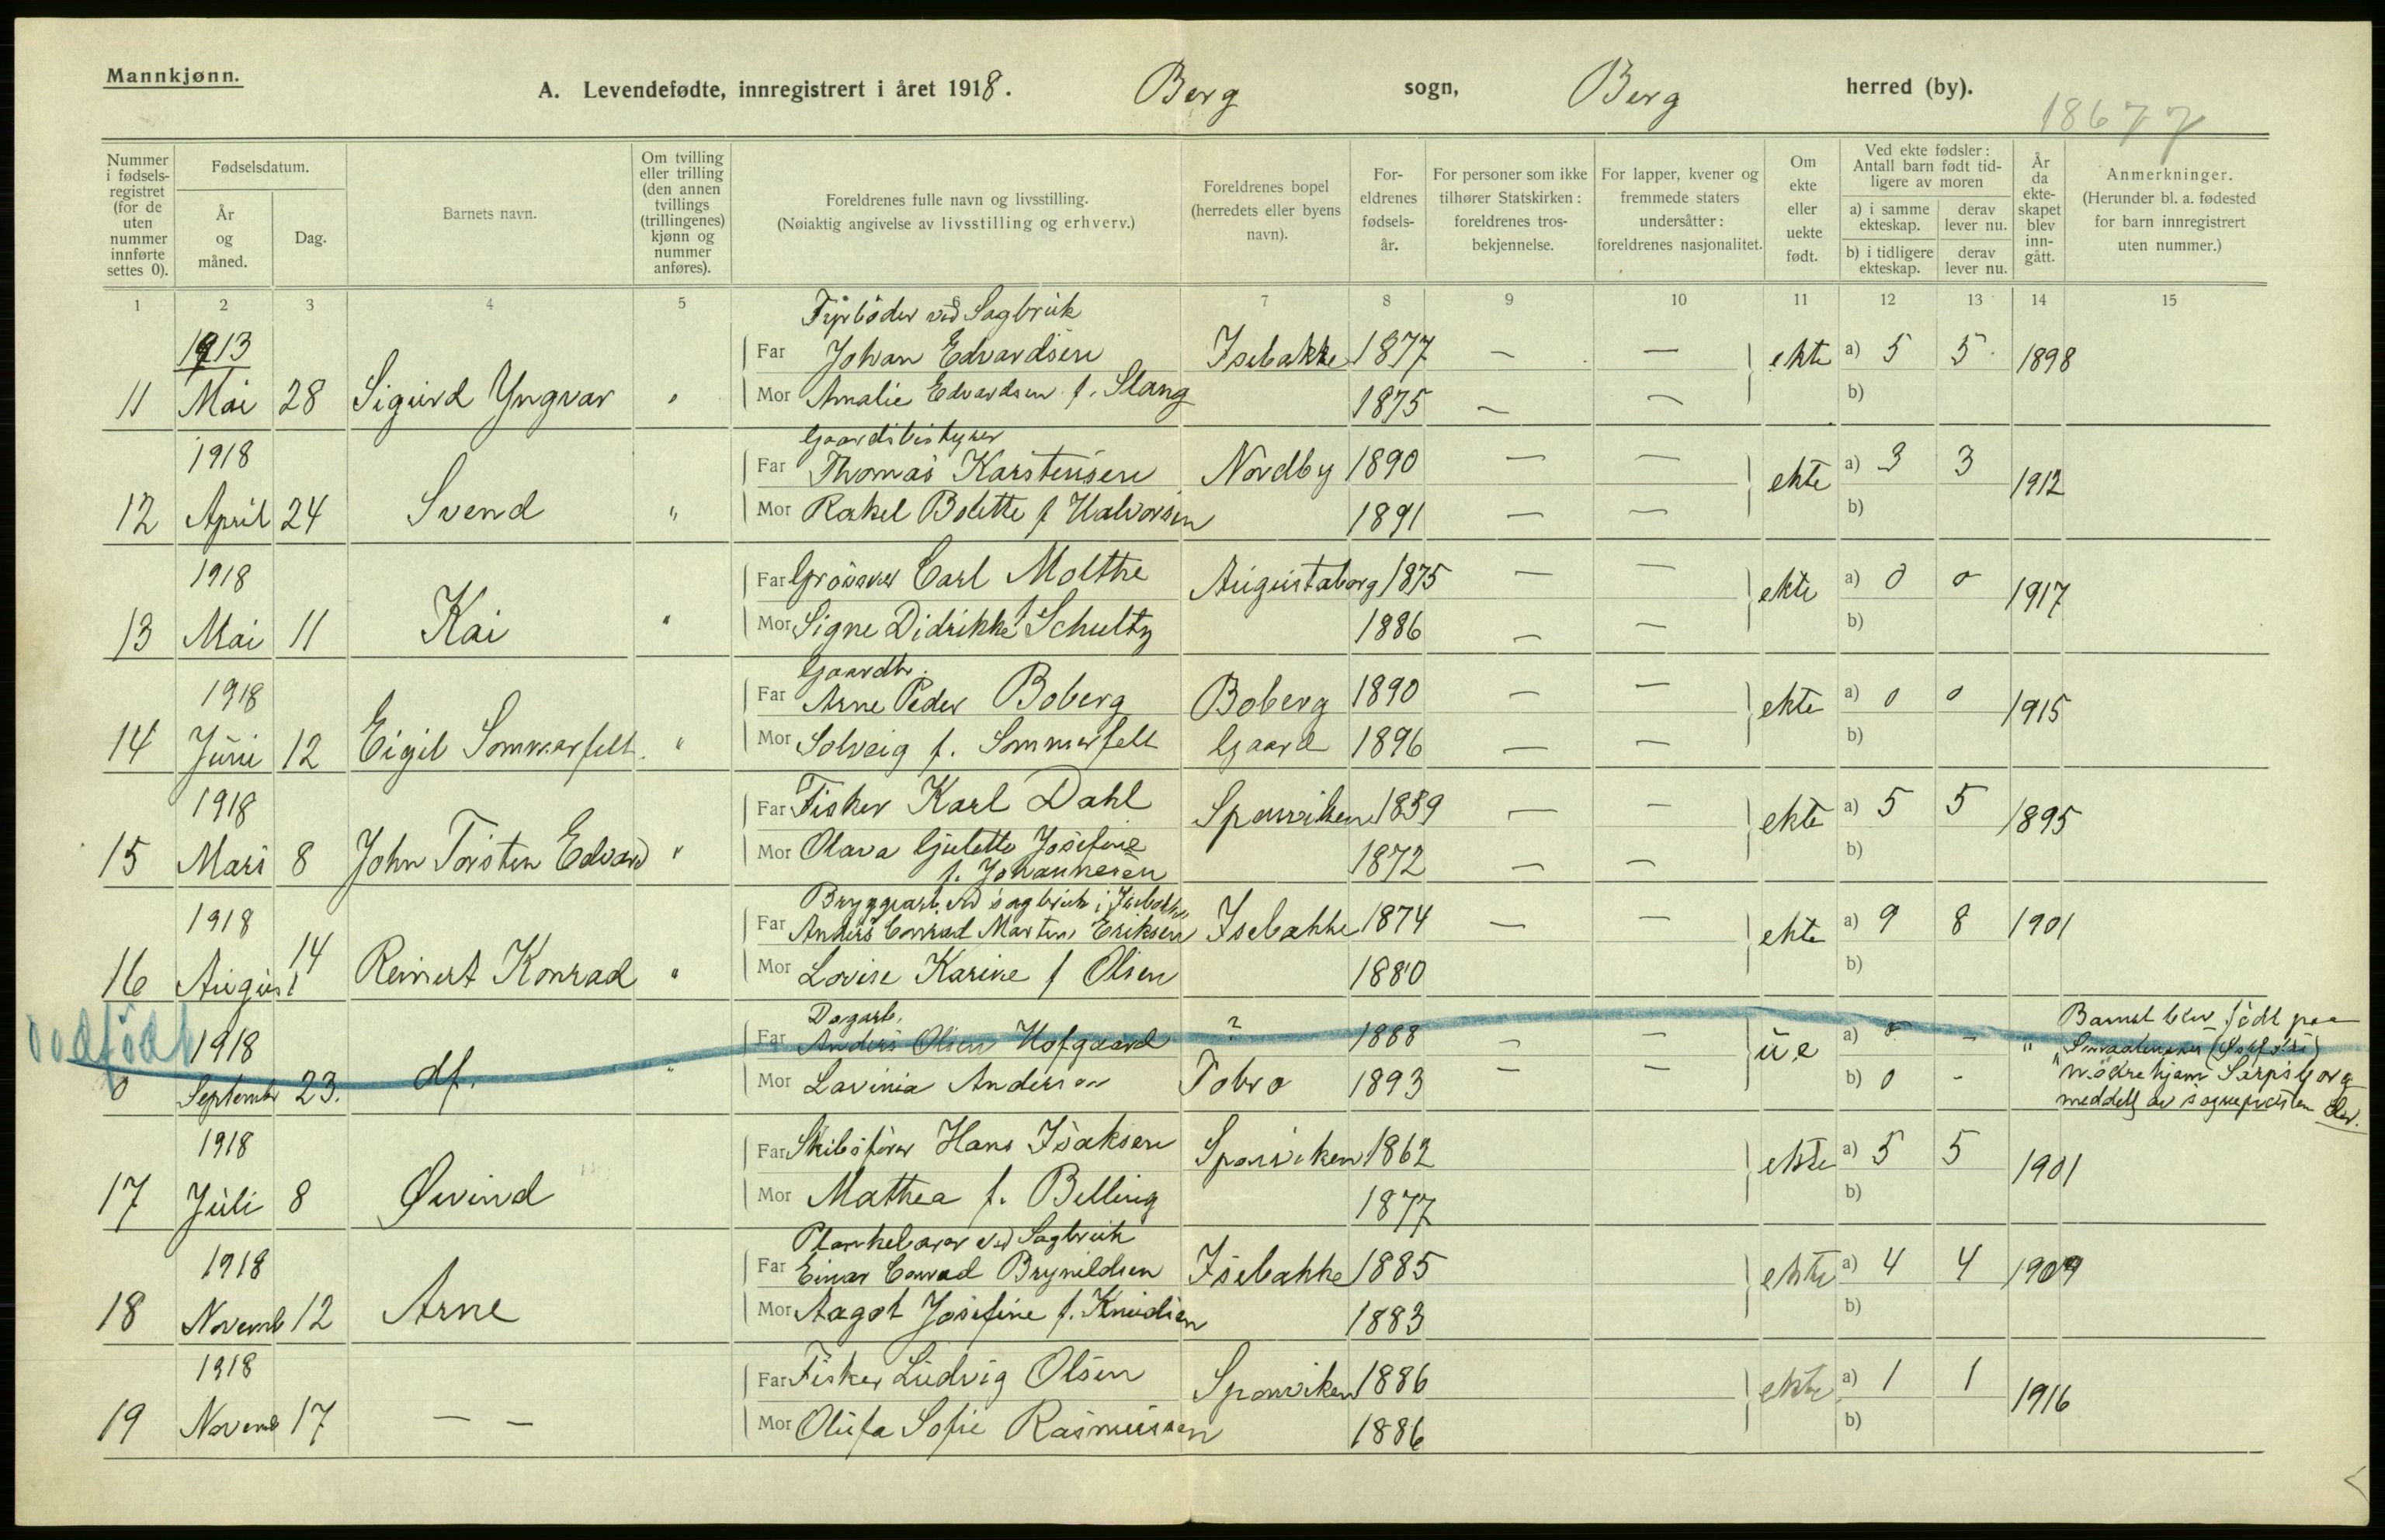 Mannkjønn.
A. Levendefødte, innregistrert i året 1918. Berg sogn, Berg herred (by).
18677
Nummer i fødsels-registret (for de uten nummer innførte settes 0).
Fødselsdatum.
År og måned.
Dag.
Barnets navn.
Om tvilling eller trilling (den annen tvillings (trillingenes) kjønn og nummer anføres).
Foreldrenes fulle navn og livsstilling.
(Nøiaktig angivelse av livsstilling og erhverv.)
Foreldrenes bopel (herredets eller byens navn).
For-eldrenes fødsels-år.
For personer som ikke tilhører Statskirken: foreldrenes tros-bekjennelse.
For lapper, kvener og fremmede staters undersåtter: foreldrenes nasjonalitet.
Om ekte eller uekte født.
Ved ekte fødsler: Antall barn født tid-ligere av moren
a) i samme ekteskap. derav lever nu.
b) i tidligere ekteskap. derav lever nu.
År da ekte-skapet blev inn-gått.
Anmerkninger.
(Herunder bl. a. fødested for barn innregistrert uten nummer.)
1 2 3 4 5 7 8 9 10 11 12 13 14 15
Fyrbøder ved Sagbruk
1913 Far Johan Edvardsen Isebakke 1877 — — ekte a) 5 5 1898
11 Mai 28 Sigurd Yngvar " Mor Amalie Edvardsen f. Stang 1875 — — b)
Gaardsbestyrer
1918 Far Thomas Karstensen Nordby 1890 — — ekte a) 3 3 1912
12 April 24 Svend " Mor Rakel Bolette f Halvorsen 1891 — — b)
1918 Far Grosserer Carl Molthe Augustaborg 1875 — — ekte a) 0 0 1917
13 Mai 11 Kai " Mor Signe Didrikke f. Schultz 1886 — — b)
Gaardbr.
1918 Far Arne Peder Boberg Boberg 1890 — — ekte a) 0 0 1915
14 Juni 12 Eigil Sommerfelt. " Mor Solveig f. Sommerfelt Gaard 1896 — — b)
1918 Far Fisker Karl Dahl Sponviken 1859 — — ekte a) 5 5 1895
15 Mars 8 John Torsten Edvard " Mor Olava Gulette Josefine
f. Johannesen 1872 — — b)
Bryggearb. ved sagbruk i Isebakke
1918 Far Anders Conrad Martin Eriksen Isebakke 1874 — — ekte a) 9 8 1901
16 August 14 Reinert Konrad " Mor Lovise Karine f Olsen 1880 b)
dødfødt
Dagarb.
1918 Far Anders Olsen Hofgaard ? 1888 — — ue a) 0 - " Barnet blev født paa
0 September 23. df. " Mor Lavinia Anderson Tobro 1893 — — b) 0 -
mødrehjem Sarpsborg
meddelt av sognepresten
1918 Far Skibsfører Hans Isaksen Sponviken 1862 ekte a) 5 5 1901
17 Juli 8 Øivind Mor Mathea f. Belling 1877 b)
Plankebærer ved Sagbruk
1918 Far Einar Conrad Brynildsen Isebakke 1885 ekte a) 4 4 1909
18 Novemb 12 Arne Mor Aagot Josefine f. Knudsen 1883 b)
1918 Far Fisker Ludvig Olsen Sponviken 1886 ekte a) 1 1 1916
19 Novemb 17 — — Mor Olufa Sofie Rasmussen 1886 b)